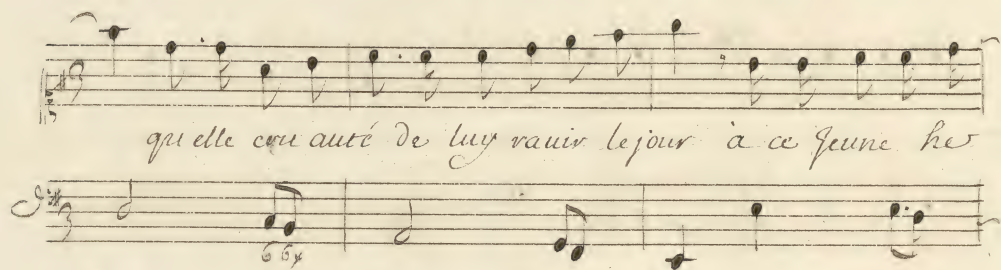 qu elle cru auté de luy rauir le jour à ce Jeune he
6 6x